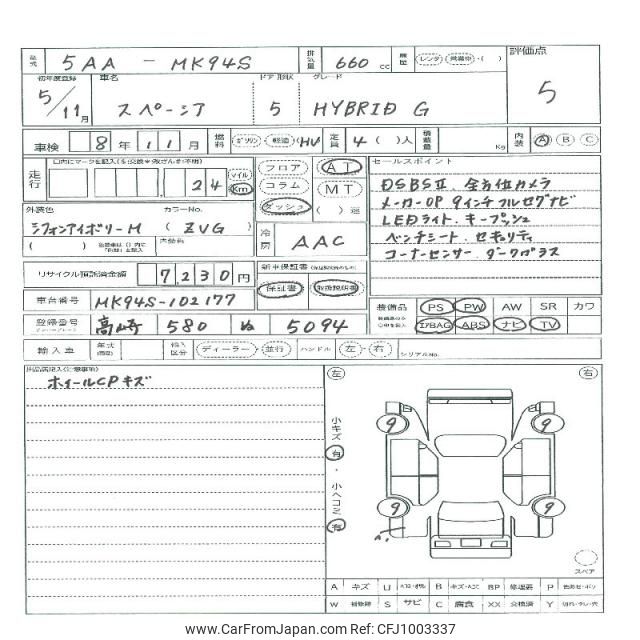 型式 5AA - MK94S 排気量 660 cc 履歴 レンタ ( )
評価点 5
初年度登録 車名 ドア 形状 グレード
5/11月 スペーシア 5 HYBRID G
車検 8年 11月 燃料 ガソリン 軽油 HV 定員 4 ( )人 積載量 Kg 内装 A B C
走行 24 マイル Km
フロア コラム ダッシュ AT MT ( )速
セールスポイント
DSBSII. 全方位カメラ
メーカーOP 9インチフルセグナビ
LEDライト. キープッシュ
ベンチシート. セキュリティ
コーナーセンサー. ダークガラス
外装色 カラーNo.
シフォンアイボリーM ( ZVG )
冷房 AAC
リサイクル預託済金額 7,230円
新車保証書
保証書 取扱説明書
車台番号 MK94S-102177
装備品 PS PW AW SR カワ
エアBAG ABS ナビ TV
登録番号 高崎 580 ぬ 5094
輸入車 年式 輸入区分 ディーラー・並行 ハンドル 左・右 シリアルNo.
ホイールCPキズ
左 右
小キズ 有 ・ 小ヘコミ 有
9 9
9 9
スペア
A キズ U B キズ・ヘコミ BP 修理要 P
W 補修跡 S サビ C 腐食 XX 交換済 Y
www.CarFromJapan.com ©CFJ1003337